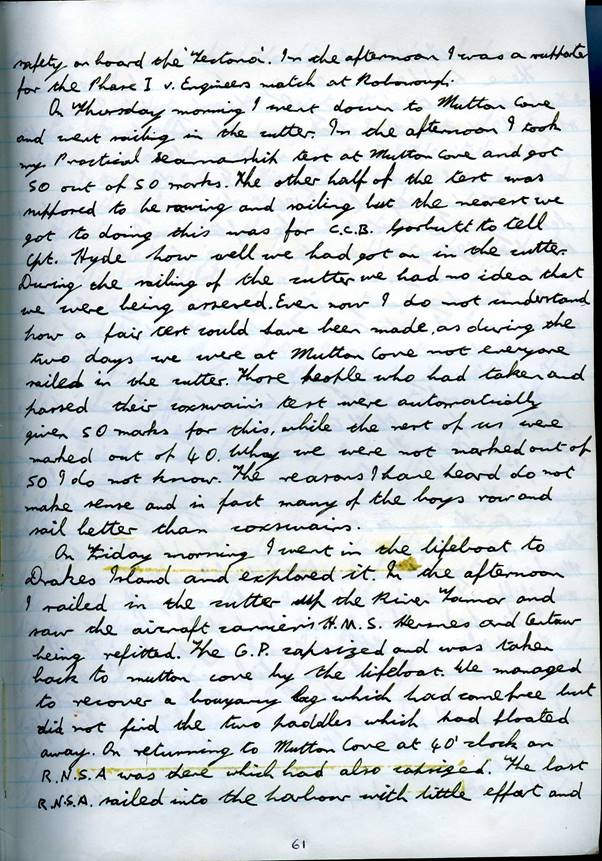 safety on board the 'Tectona'. In the afternoon I was a supporter
for the Phase I v. Engineers match at Roborough.
On Thursday morning I went down to Mutton Cove
and went sailing in the cutter. In the afternoon I took
my Practical seamanship test at Mutton Cove and got
50 out of 50 marks. The other half of the test was
supposed to be rowing and sailing but the nearest we
got to doing this was for C.C.B. Gorbutt to tell
Cpt. Hyde how well we had got on in the cutter.
During the sailing of the cutter we had no idea that
we were being assessed. Even now I do not understand
how a fair test could have been made, as during the
two days we were at Mutton Cove not everyone
sailed in the cutter. Those people who had taken and
passed their coxswain's test were automatically
given 50 marks for this, while the rest of us were
marked out of 40. Why we were not marked out of
50 I do not know. The reasons I have heard do not
make sense and in fact many of the boys row and
sail better than coxswains.
On Friday morning I went in the lifeboat to
Drakes Island and explored it. In the afternoon
I sailed in the cutter up the River Tamar and
saw the aircraft carriers H.M.S. Hermes and Centaur
being refitted. The G.P. capsized and was taken
back to mutton cove by the lifeboat. We managed
to recover a bouyancy bag which had come free but
did not find the two paddles which had floated
away. On returning to Mutton Cove at 4 O'clock an
R.N.S.A was there which had also capsized. The last
R.N.S.A. sailed into the harbour with little effort and
61